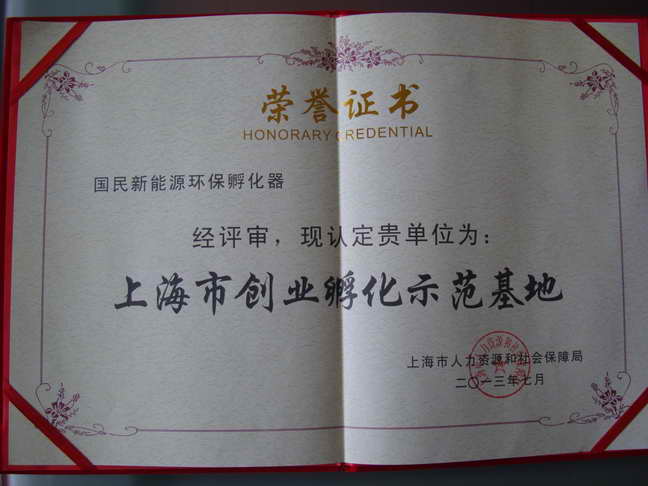 荣誉证书
HONORARY CREDENTIAL
国民新能源环保孵化器
经评审，现认定贵单位为：
上海市创业孵化示范基地
上海市人力资源和社会保障局
二〇一三年七月